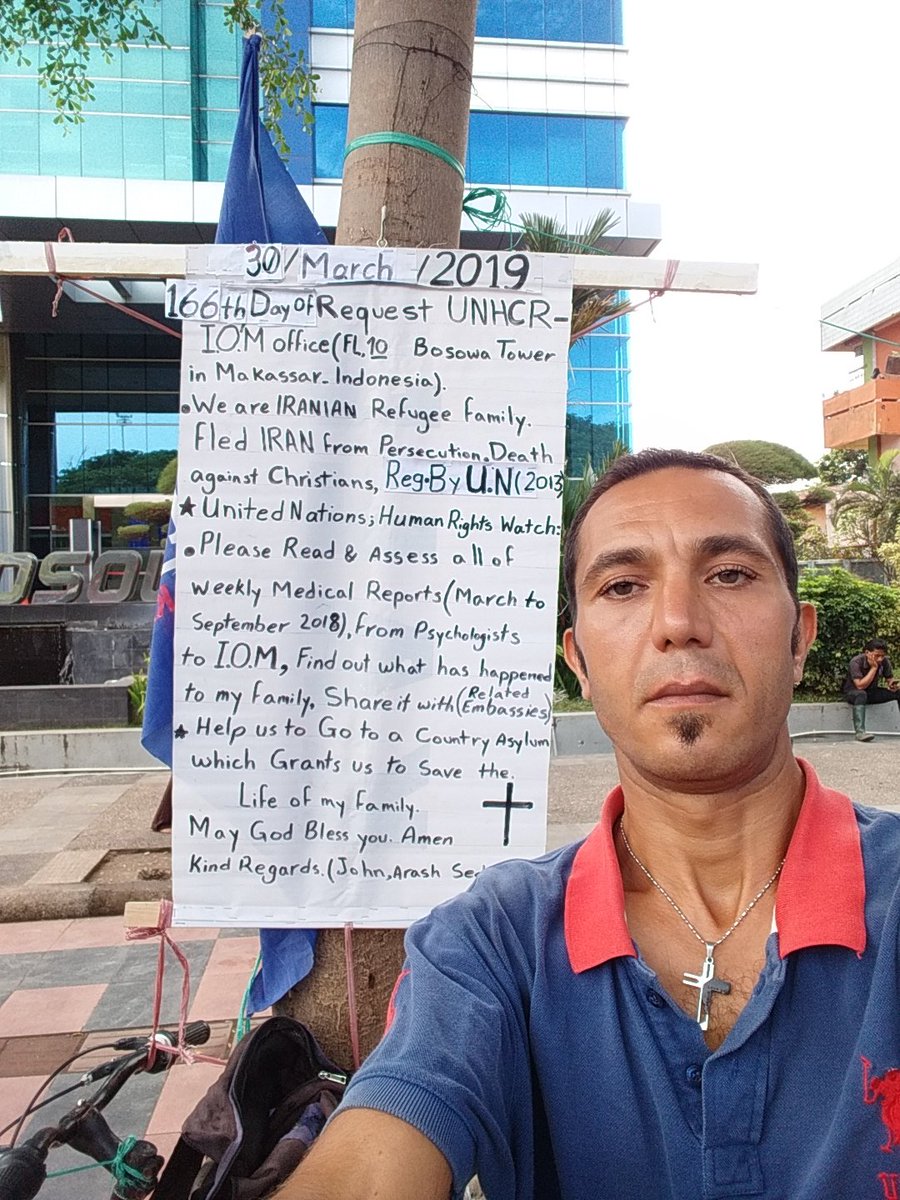 30/March/2019
166th Day of Request UNHCR-
I.O.M office(FL.10 Bosowa Tower
in Makassar-Indonesia).
•We are IRANIAN Refugee family.
Fled IRAN from Persecution.Death
against Christians, Reg.By U.N(2013
★United Nations; Human Rights Watch:
•Please Read & Assess all of
weekly Medical Reports(March to
September 2018), from Psychologists
to I.O.M, Find out what has happened
to my family. Share it with(Related Embassies)
★Help us to Go to a Country Asylum
which Grants us to Save the.
Life of my family.
May God Bless you. Amen
Kind Regards.(John,Arash